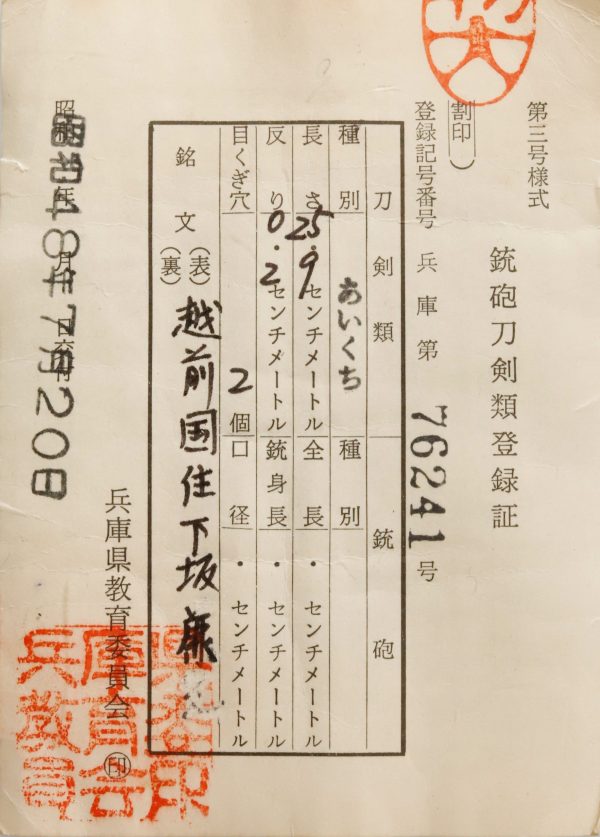 第三号様式
銃砲刀剣類登録証
(割印)
登録記号番号 兵庫第 76241 号
刀剣類 銃砲
種別 あいくち 種別
長さ 25.9センチメートル 全長 ・ センチメートル
反り 0.2センチメートル 銃身長 ・ センチメートル
目くぎ穴 2個 口径 ・ センチメートル
銘文 (表) 越前国住下坂
(裏)
昭和48年7月20日
兵庫県教育委員会 ㊞